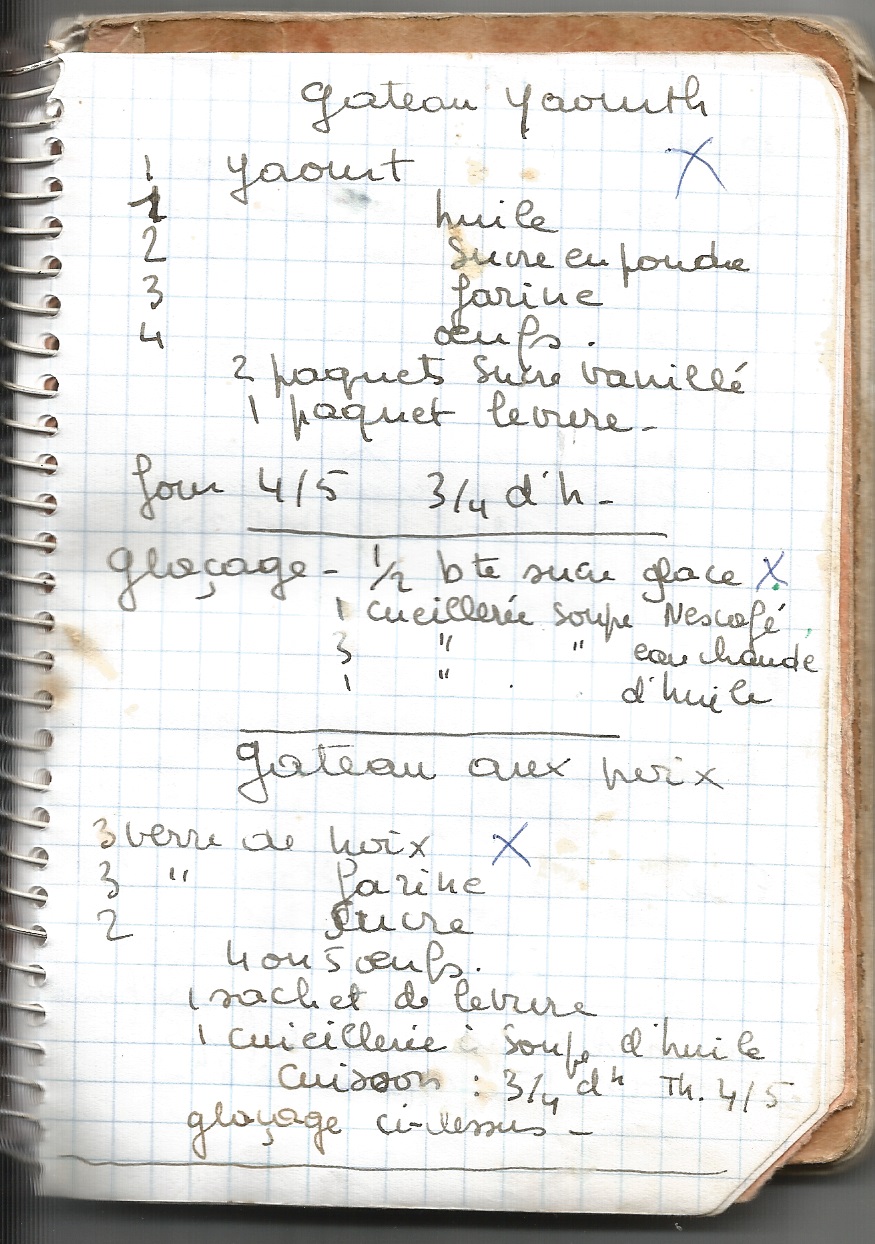 gateau yaourth
1 yaourt X
1 huile
2 sucre en poudre
3 farine
4 œufs.
2 paquets sucre vanillé
1 paquet levure -
four 4/5 3/4 d'h -
glaçage - 1/2 bte sucre glace X
1 cueillerée soupe Nescafé
3 " " eau chaude
1 " . d'huile
gateau aux noix
3 verre de noix X
3 " farine
2 sucre
4 ou 5 œufs.
1 sachet de levure
1 cuieillerie à soupe d'huile
cuisson : 3/4 d'h Th. 4/5
glaçage ci-dessus -